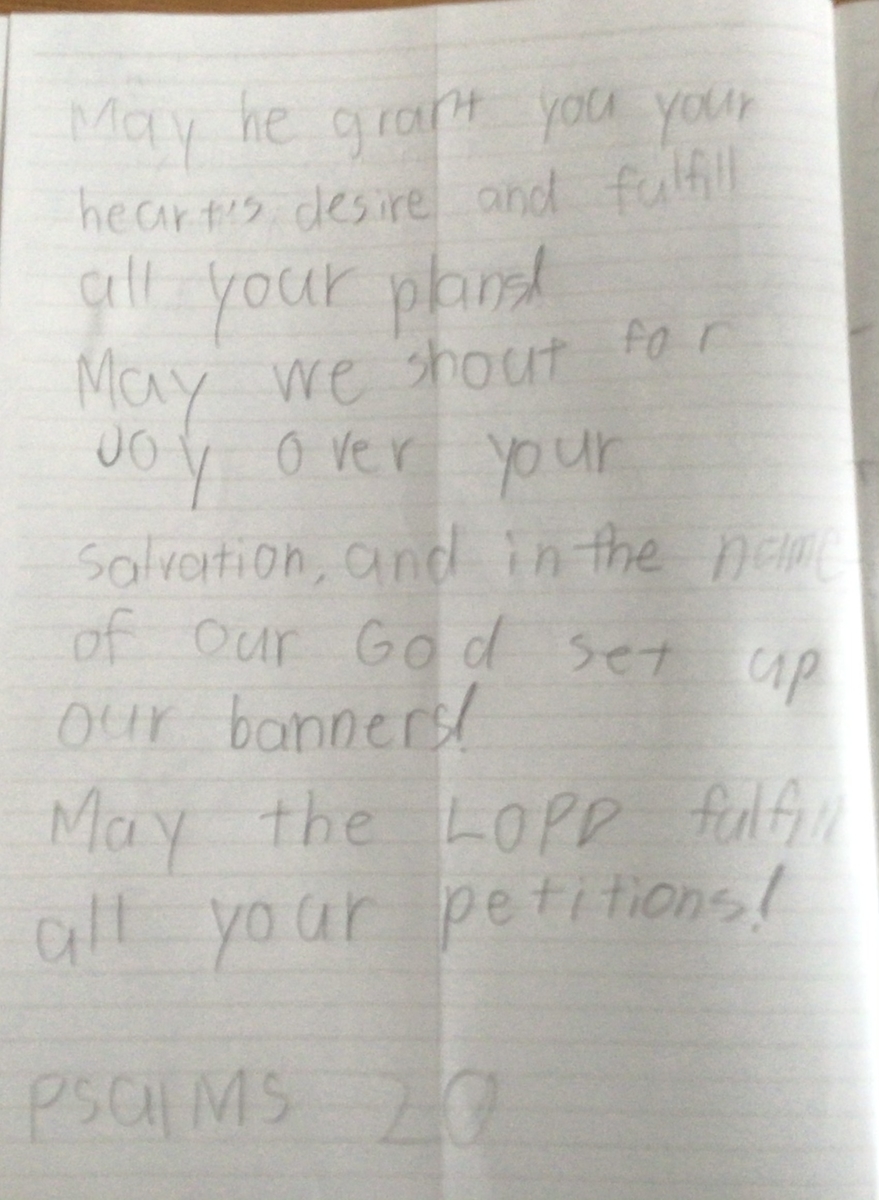 May he grant you your
heart's desire and fulfill
all your plans!
May we shout for
joy over your
salvation, and in the name
of our God set up
our banners!
May the LORD fulfill
all your petitions!
Psalms 20